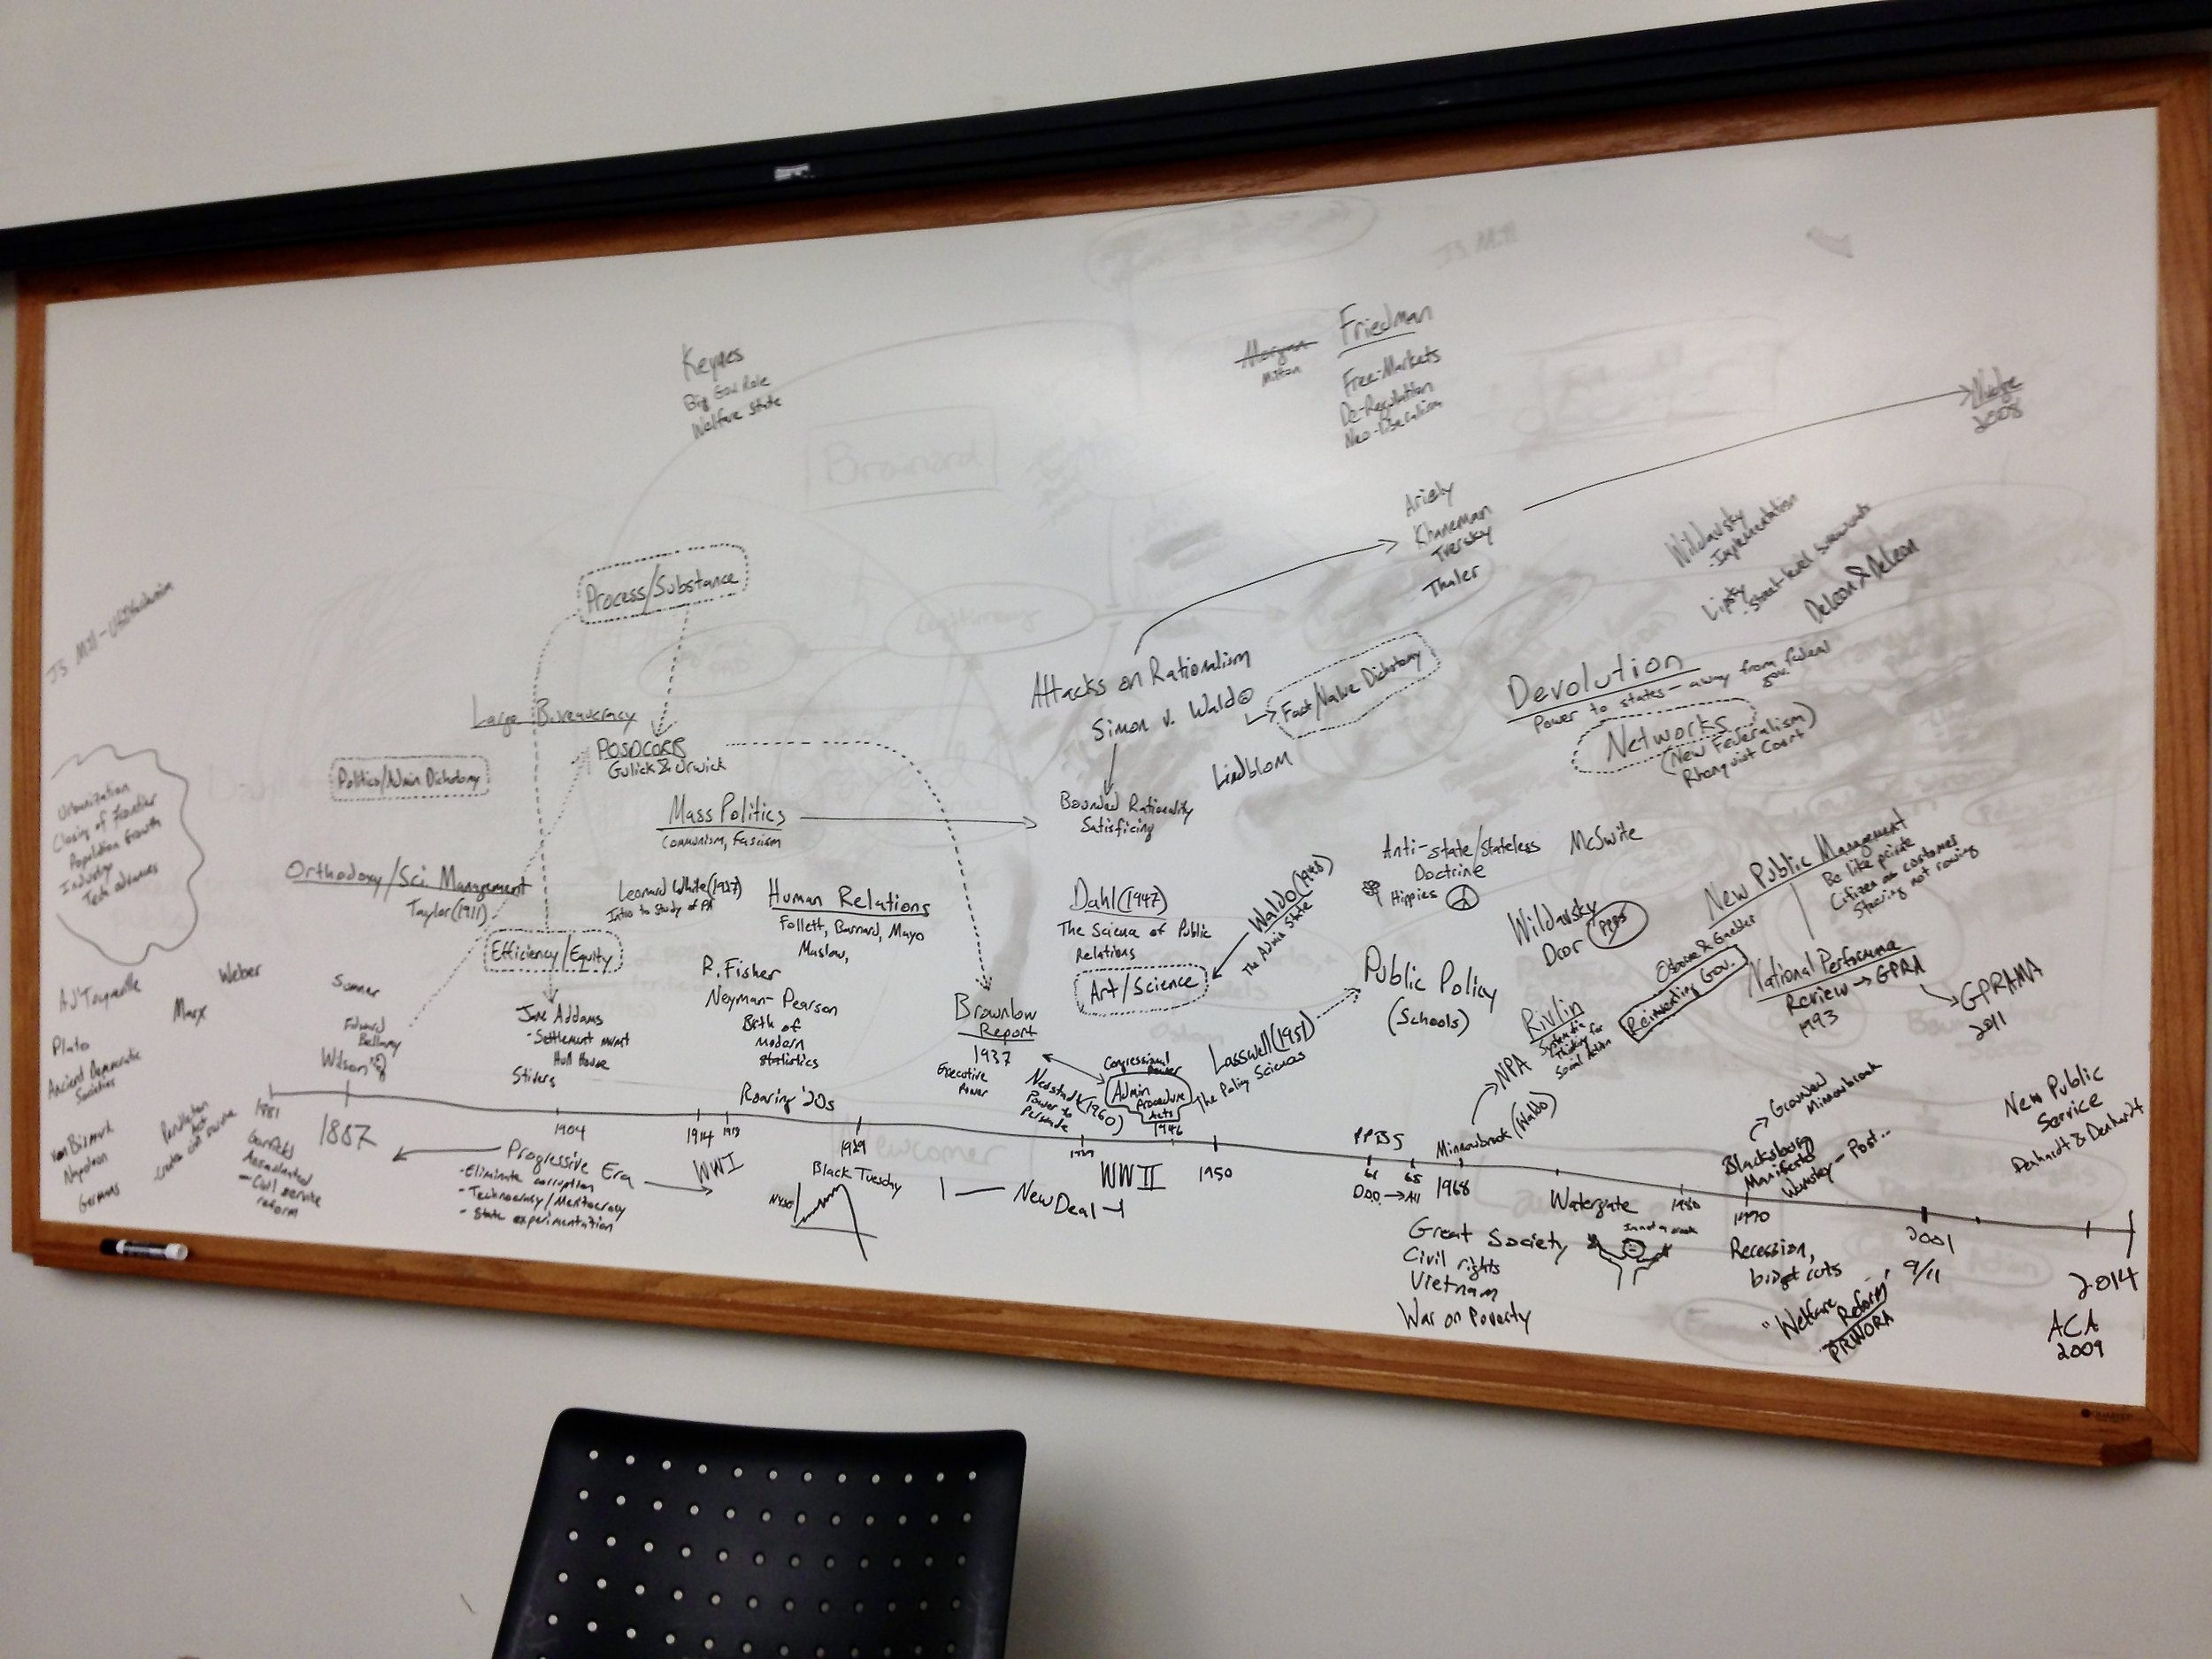 JS Mill
Keynes
Big Gov Role
Welfare State
Morgan
Milton
Friedman
Free-Markets
De-Regulation
Neo-liberalism
Nudge
2008
Brainard
Ariely
Khaneman
Tversky
Thaler
Wildavsky
-Implementation
Lipsky
-Street-level bureaucrats
DeLeon & DeLeon
Process/Substance
JS Mill-Utilitarianism
Legitimacy
Attacks on Rationalism
Simon v. Waldo
Fact/Value Dichotomy
Lindblom
Bounded Rationality
Satisficing
Devolution
Power to states - away from federal
gov.
Networks
(New Federalism)
Rhenquist Court
Large Bureaucracy
POSDCORB
Gulick & Urwick
Politics/Admin Dichotomy
Mass Politics
Communism, Fascism
Urbanization
Closing of Frontier
Population Growth
Industry
Tech advances
Orthodoxy/Sci. Management
Taylor (1911)
Leonard White (1927)
Intro to Study of PA
Human Relations
Follett, Barnard, Mayo
Maslow,
Efficiency/Equity
R. Fisher
Neyman-Pearson
Birth of
modern
statistics
Jane Addams
-Settlement mvmt
Hull House
Dahl (1947)
The Science of Public
Relations
Art/Science
Waldo (1948)
The Admin State
Anti-state/Stateless
Doctrine
Hippies
McSwite
Wildavsky
Dror
PPBS
New Public Management
Be like private
Citizen as customer
Steering not rowing
Osborne & Gaebler
Reinventing Gov.
National Performance
Review → GPRA
1993
GPRAMA
2011
Public Policy
(Schools)
Rivlin
Systematic
Thinking for
Social Action
NPA
AD Toqueville
Weber
Marx
Sumner
Plato
Ancient Democratic
Societies
Edward
Bellamy
Wilson
Brownlow
Report
1937
Executive
Power
Neustadt (1960)
Power to
Persuade
Congressional
Power
Admin
Procedure
Acts
1946
Lasswell (1951)
The Policy Sciences
Minnowbrook (Waldo)
Grounded
Minnowbrook
Blacksburg
Manifesto
Wamsley - Post..
New Public
Service
Denhardt & Denhardt
von Bismark
Napoleon
Germans
Pendleton
Act
-create civil service
1881
Garfield
Assassinated
-Civil service
reform
1887
1904
1914
1918
Roaring '20s
1929
WWI
Progressive Era
-Eliminate corruption
-Technocracy/Meritocracy
-State experimentation
Black Tuesday
NYSE
New Deal
Newcomer
WWII
1950
PPBS
61
65
DOD → All
1968
Great Society
Civil rights
Vietnam
War on Poverty
Watergate
1980
1990
Recession,
budget cuts
"Welfare
Reform"
PRWORA
2001
9/11
2014
ACA
2009